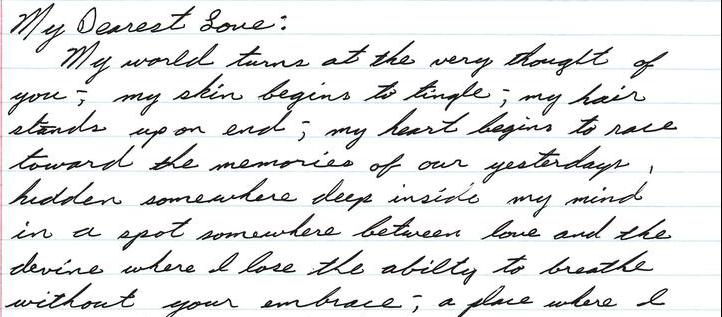 My Dearest Love:
My world turns at the very thought of
you-; my skin begins to tingle-; my hair
stands up on end-; my heart begins to race
toward the memories of our yesterdays,
hidden somewhere deep inside my mind
in a spot somewhere between love and the
devine where I lose the abilty to breathe
without your embrace-; a place where I